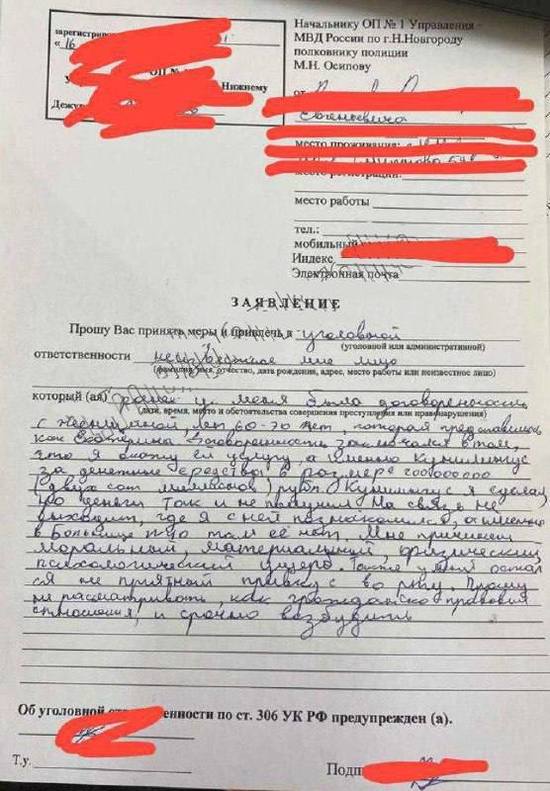 зарегистриро
« 16
ОП №
Нижнему
Дежу
Начальнику ОП № 1 Управления
МВД России по г.Н.Новгороду
полковнику полиции
М.Н. Осипову
от
Евгеньевича
место проживания:
место регистрации:
место работы
тел.:
мобильный
Индекс
Электронная почта
ЗАЯВЛЕНИЕ
Прошу Вас принять меры и привлечь к уголовной
(уголовной или административной)
ответственности неизвестное мне лицо
(фамилия, имя, отчество, дата рождения, адрес, место работы или неизвестное лицо)
который (ая) у меня была договоренность
(дата, время, место и обстоятельства совершения преступления или правонарушения)
с женщиной, лет 60-70 лет, которая представилась
как Екатерина. Договоренность заключался в том,
что я окажу ей услугу, а именно Кунилингус
за денежные средства в размере 200000000
(двух сот миллионов) рубл. Кунилингус я сделал,
но деньги так и не получил. На связь не
выходит, где я с ней познакомился, а именно
в Больнице там её нет. Мне причинен
моральный, материальный, физический,
психологический ущерб. Также у меня остал
ся не приятный привкус во рту. Прошу
не расматривать как гражданско правовия
отношения, и срочно возбудить
Об уголовной ответственности по ст. 306 УК РФ предупрежден (а).
Т.у.
Подп